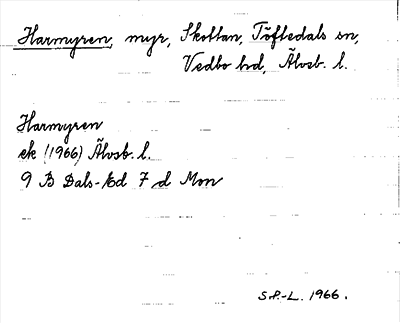 Harmyren, myr, Skottan, Töftedals sn,
Vedbo hd, Älvsb. l.
Harmyren
ek (1966) Älvsb. l.
9 B Dals-Ed 7 d Mon
S.P.-L. 1966.